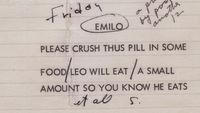 Friday
EMILO
PLEASE CRUSH THUS PILL IN SOME
FOOD/LEO WILL EAT/A SMALL
AMOUNT SO YOU KNOW HE EATS
it all